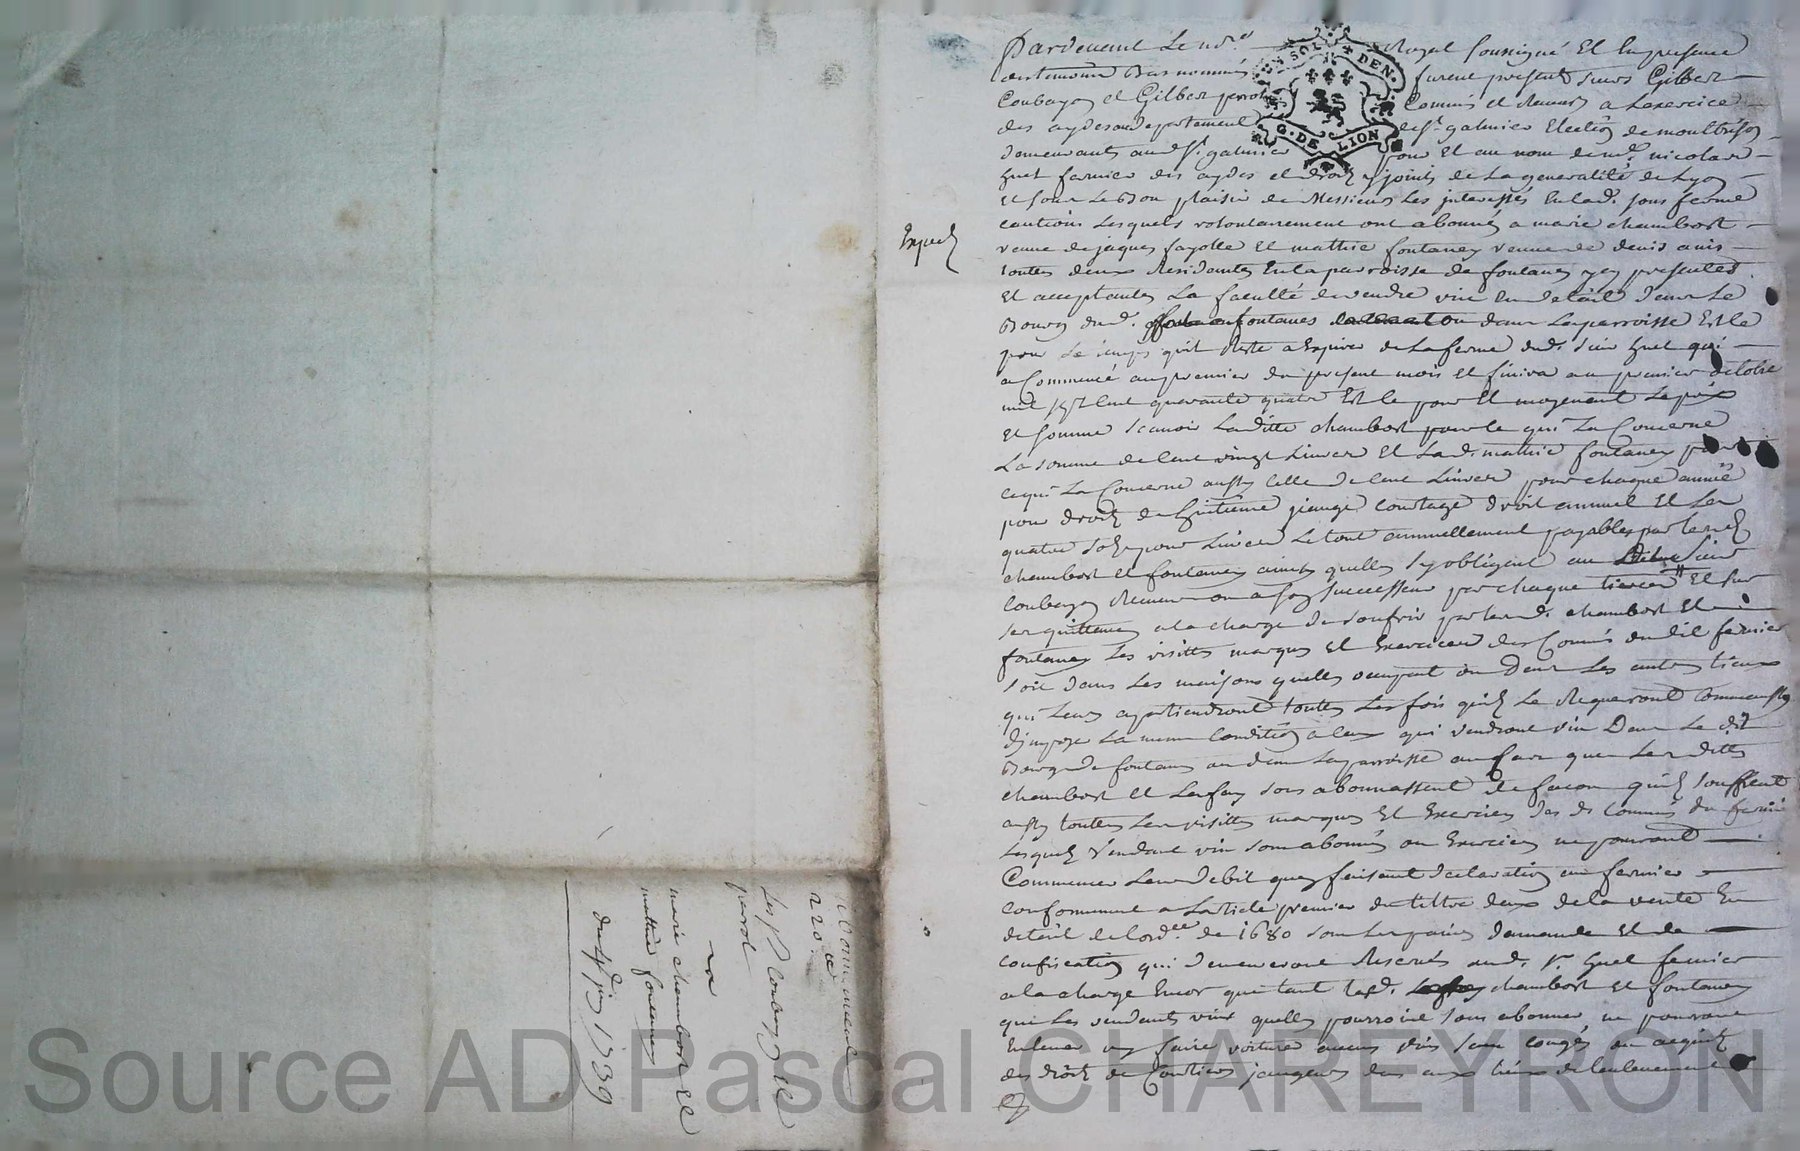 Pardevant le no.re Royal soussigné et en presence
des temoins bas nommés furent presents sieurs Gilbert
Coubayon et Gilbert perrot Commis et Receveur a lexercice
des aydes au departement de st galmier Election de montbrison
demeurants aud. st. galmier pour et au nom de me. nicolas
huet fermier des aydes et droits y joints de la generalité de Lyon
et sous le bon plaisir de Messieurs les interessés en lad. sous ferme
cautions lesquels volontairement ont abonné a marie chambost
veuve de jaques fayolle et mathie fontaney veuve de denis
toutes deux Residantes en la parroisse de fontanes icy presentes
et acceptantes La faculté de vendre vin en detail dans le
Bourg dud. fontanes ou dans la parroisse et ce
pour le temps qu'il Reste a Expirer de la ferme dud. sieur huet qui
a Commencé au premier du present mois et finira au premier octobre
mil sept cent quarante quatre et ce pour et moyenant le prix
et somme scavoir Laditte chambost pour ce qui la Concerne
La somme de cent vingt Livres et lad. mathie fontaney pour
ce qui La Concerne aussy celle de cent Livres pour chaque année
pour droits de huitieme jauge courtage droit annuel et les
quatre sols pour Livre le tout annuellement payables par lesd.
chambost et fontaney ainsy quelles sy obligent au sieur
Coubayon Receveur ou a son successeur par chaque tierce et sur
ses quittances a la charge de souffrir par lesd. chambost et
fontaney les visittes marques et Exercices des Commis dudit fermier
soit dans les maisons quelles occupent ou dans les autres lieux
qui leurs apartiendront toutes les fois quils le Requeront comme aussy
dimposer la meme Condition a ceux qui vendront vin Dans le dit
Bourg de fontanes ou dans la parroisse au cas que lesdittes
chambost et sous abonnassent de facon quils souffrent
aussy toutes les visittes marques et Exercices des ds. Commis du fermier
Lesquels vendant vin sous abonnés ou Exercices ne pourront
Commencer leur debit quen faisant declaration au fermier
conformement a Larticle premier du tiltre deux de la vente En
detail de lord.ce de 1680 sous les paines damande et de
confiscation qui demeureront Reservés aud. sr. huet fermier
a la charge Encor que tant lesd. chambost et fontaney
que les vendants vin quelles pourroint sous abonner ne pourront
Enlever ny faire voiturer aucun vin sans congés ou acquits
des droits de Courtiers jaugeurs dus aux lieux de lenlevement
Exped.
G. DE LION
SOL
DEN.
abonnement
220 tt
Les srs. Coubayon et
perrot
a
marie chambost et
mathie fontaney
du 1739
Source AD Pascal CHAREYRON